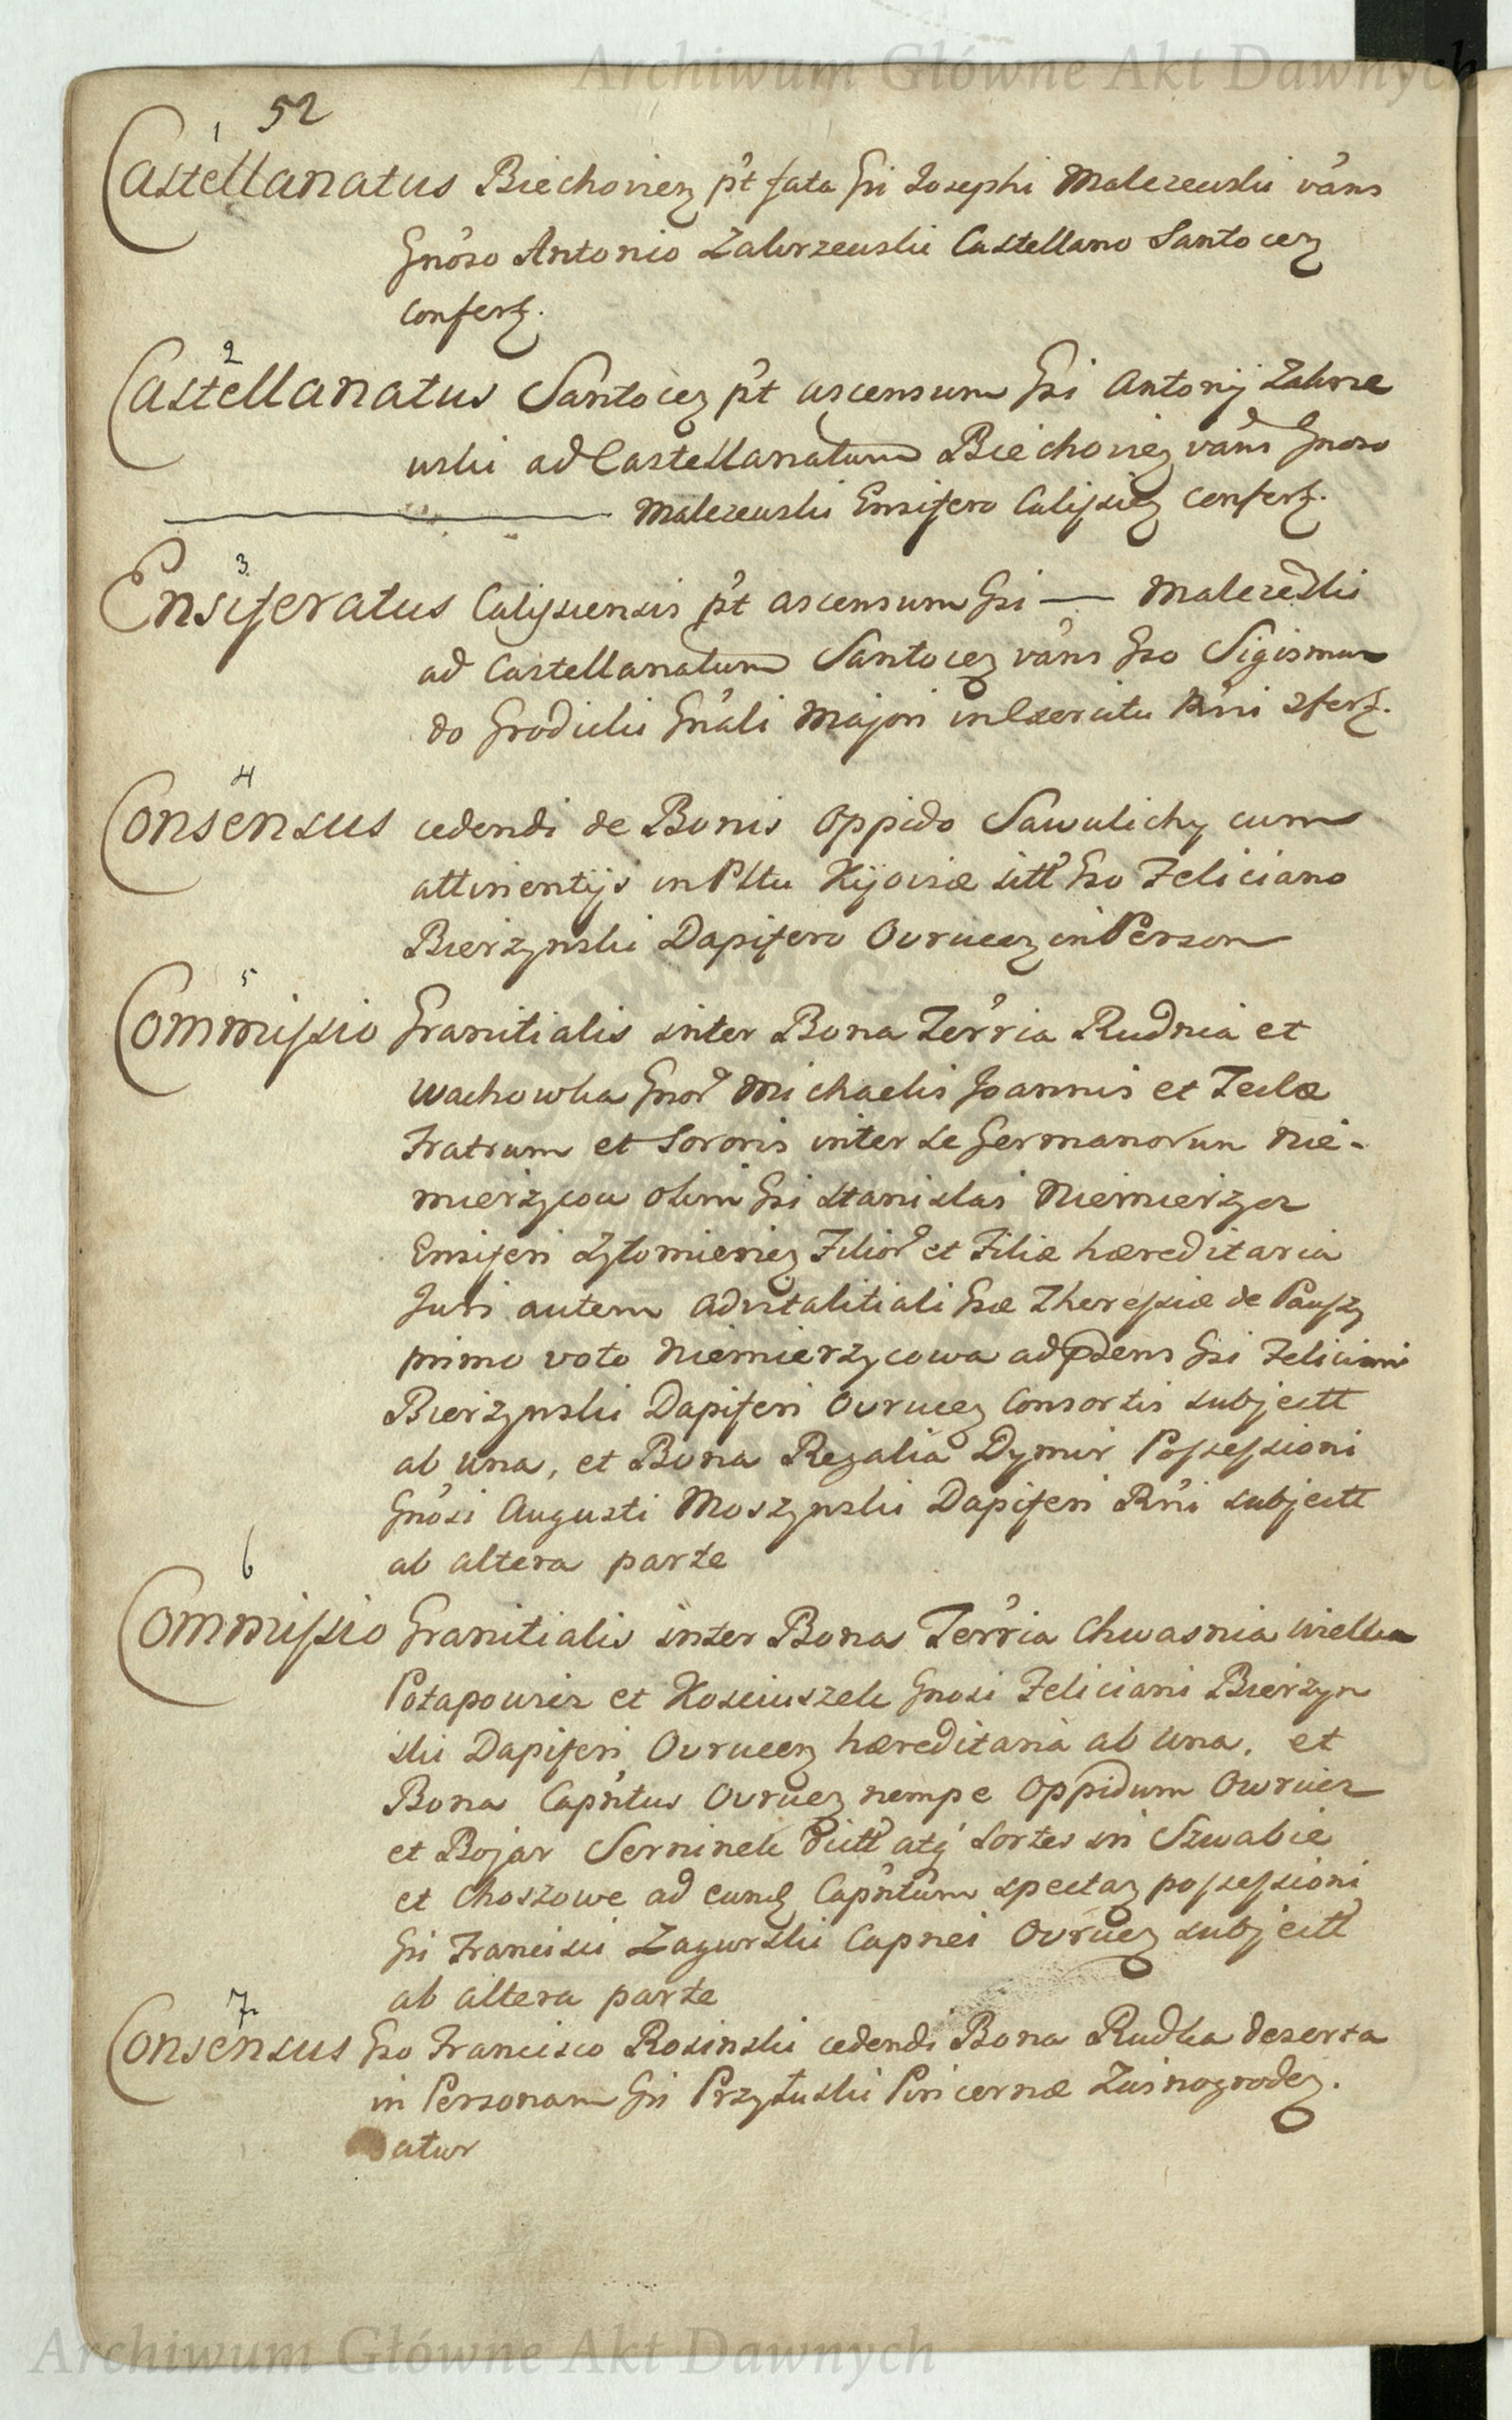 Archiwum Główne Akt Dawnych
52
1
Castellanatus Biechovien pt fata Gsi Josephi Malczewski vans
Gnoso Antonio Zakrzewski Castellano Santocen
Confert.
2
Castellanatus Santocen pt ascensum Gsi Antonij Zakrze
wski ad Castellanatum Biechovien vans Gnoso
Malczewski Ensifero Calissien Confert.
3
Ensiferatus Calissiensis pt ascensum Gsi — Malczewski
ad Castellanatum Santocen vans Gso Sigismun
do Grodzicki Gnali Majori in Exercitu Rni
4
Consensus cedendi de Bonis Oppido Sawulichy cum
attinentijs in Pltu Kijoviæ sitt Gso Feliciano
Bierzynski Dapifero Ovrucen in Person
5
Commissio Granitialis inter Bona Terria Rudnia et
Wachowka Gnor Michaelis Joannis et Teclæ
Fratrum et Sororis inter se Germanorum Nie-
mierzycow olim Gsi Stanislai Niemierzyca
Ensiferi Zytomirien Filior et Filiæ hæreditaria
Juri autem Advitalitiali Gsæ Theressiæ de
primo voto Niemierzycowa ad præsens Gsi Feliciani
Bierzynski Dapiferi Ovrucen Consortis subjectt
ab una, et Bona Regalia Dymir Possessioni
Gnosi Augusti Moszynski Dapiferi Rni subjectt
ab altera parte
6
Commissio Granitialis inter Bona Terria Chwasnia Wielka
Potapowicz et Kosciuszek Gnosi Feliciani Bierzyn
ski Dapiferi Ovrucen hæreditaria ab una, et
Bona Capntus Ovrucen nempe Oppidum Owrucz
et Bojar Serninek dictt atq sortes in Szwabie
et Choszowe ad eund Capntum spectan possessioni
Gsi Francisci Zagurski Capnei Ovrucen subjectt
ab altera parte
7
Consensus Gso Francisco Rosinski cedendi Bona Rudka deserta
in Personam Gsi Przyłuski Pincernæ Zwinogroden.
atur
Archiwum Główne Akt Dawnych